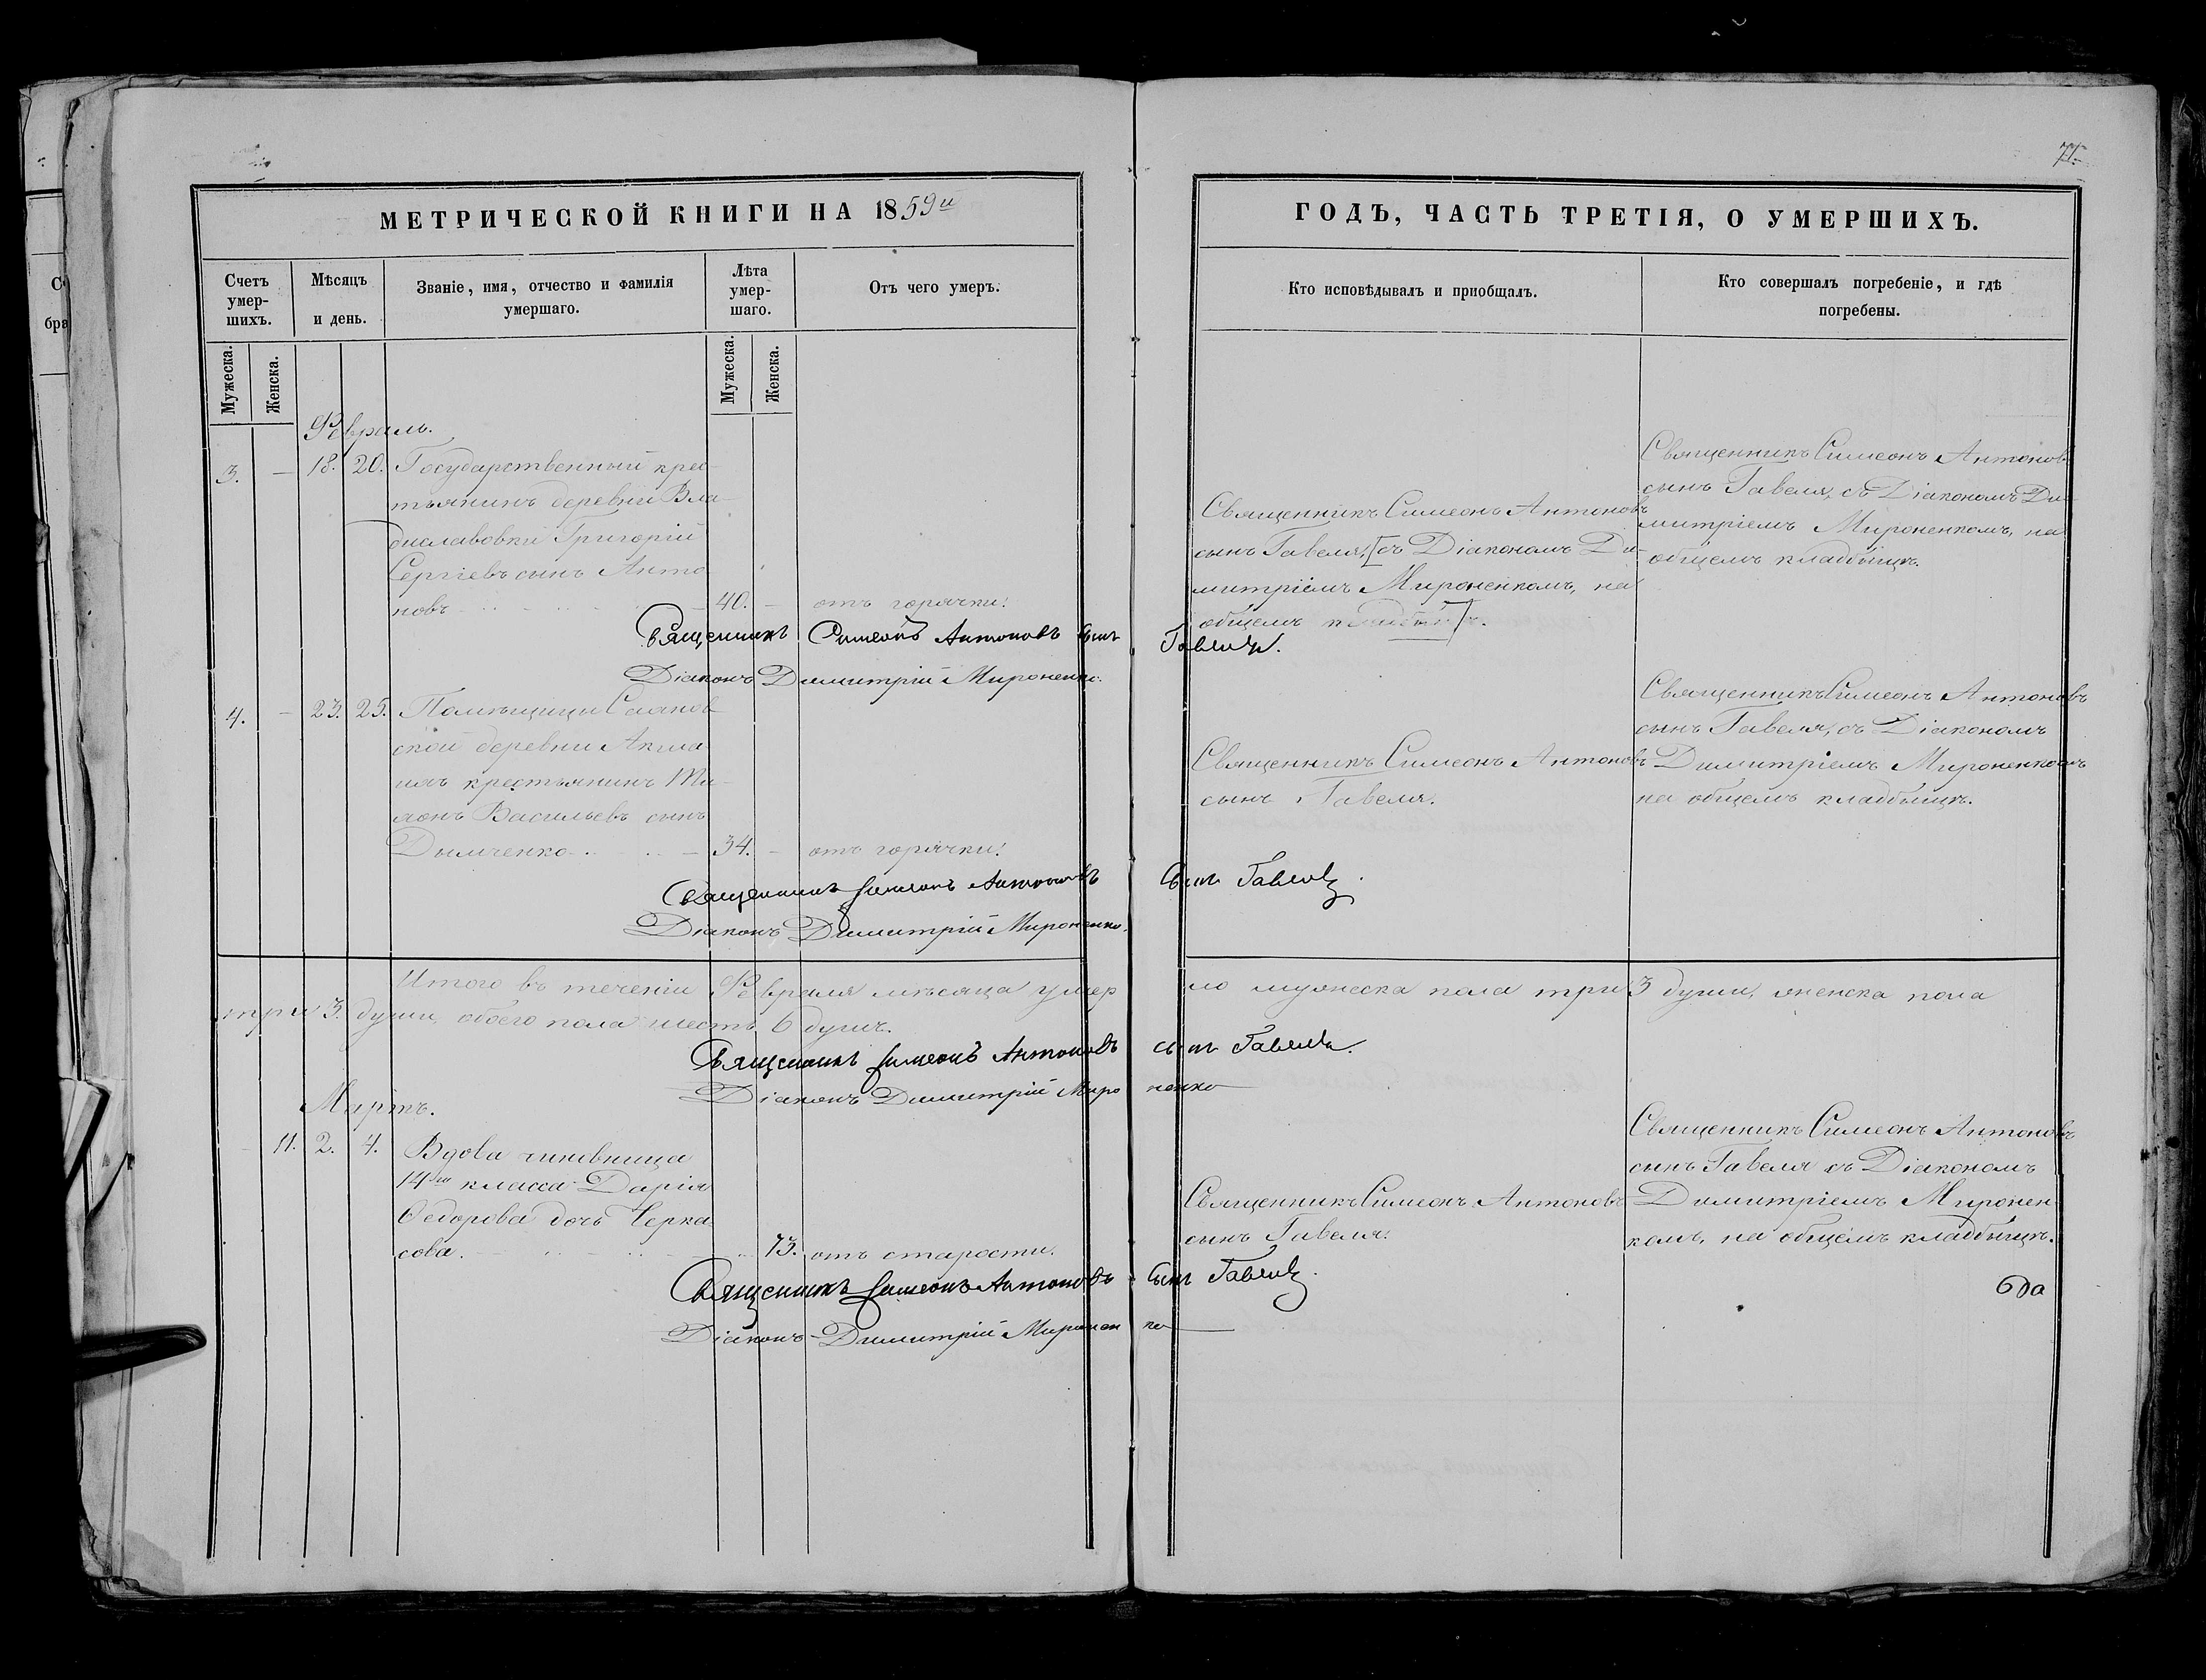 МЕТРИЧЕСКОЙ КНИГИ НА 1859й
Счетъ умер-шихъ.
Мѣсяцъ и день.
Званіе, имя, отчество и фамилія умершаго.
Лѣта умер-шаго.
Отъ чего умеръ.
Мужеска.
Женска.
Мужеска.
Женска.
Февраль.
3. — 18. 20. Государственный крес-
тьянинъ деревни Вла-
диславовки Григорій
Сергіевъ сынъ Анто-
новъ 40. — отъ горячки.
Священникъ Симеонъ Антоновъ сынъ Гавеля.
Діаконъ Димитрій Мироненко.
4. — 23. 25. Помѣщицы
ской деревни
крестьянинъ
Васильевъ сынъ
Дымченко 34. — отъ горячки.
Священникъ Симеонъ Антоновъ сынъ Гавеля.
Діаконъ Димитрій Мироненко.
Итого въ теченіи Февраля мѣсяца умер
ло мужеска пола три 3 души, женска пола
три 3. души, обоего пола шесть 6 душъ.
Священникъ Симеонъ Антоновъ сынъ Гавеля.
Діаконъ Димитрій Мироненко
Мартъ.
— 11. 2. 4. Вдова чиновница
14го класса Дарія
Ѳедорова дочь Черка-
сова. 73. отъ старости.
Священникъ Симеонъ Антоновъ сынъ Гавеля.
Діаконъ Димитрій Мироненко
ГОДЪ, ЧАСТЬ ТРЕТІЯ, О УМЕРШИХЪ.
Кто исповѣдывалъ и приобщалъ.
Кто совершалъ погребеніе, и гдѣ погребены.
Священникъ Симеонъ Антоновъ
сынъ Гавеля, [съ Діакономъ Ди-
митріемъ Мироненкомъ, на
общемъ кладбищѣ].
Священникъ Симеонъ Антоновъ
сынъ Гавеля, съ Діакономъ Ди-
митріемъ Мироненкомъ, на
общемъ кладбищѣ.
Священникъ Симеонъ Антоновъ
сынъ Гавеля.
Священникъ Симеонъ Антоновъ
сынъ Гавеля, съ Діакономъ
Димитріемъ Мироненкомъ
на общемъ кладбищѣ.
Священникъ Симеонъ Антоновъ
сынъ Гавеля.
Священникъ Симеонъ Антоновъ
сынъ Гавеля съ Діакономъ
Димитріемъ Миронен-
комъ, на общемъ кладбищѣ.